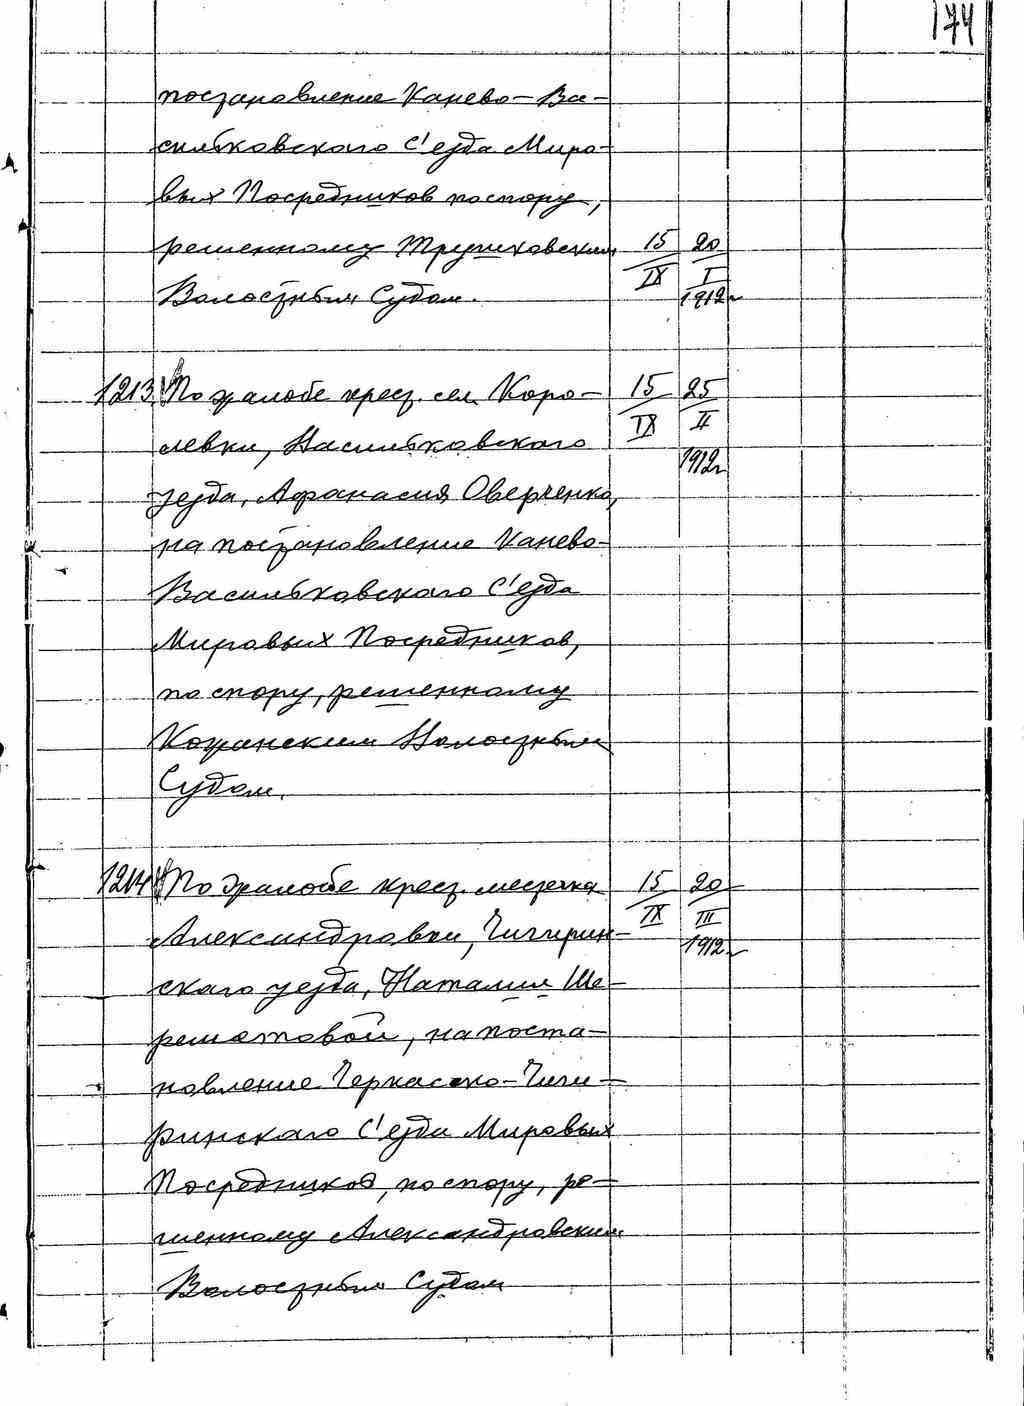 174
постановление Канево-Ва-
сильковского С'езда Миро-
вых Посредников по спору,
решенному Трушковским 15/IX 20/I 1912 г.
Волостным Судом.
1213 По жалобе крест. сел. Коро- 15/IX 25/II 1912 г.
левки, Васильковского
уезда, Афанасия Оверченко,
на постановление Канево-
Васильковского С'езда
Мировых Посредников,
по спору, решенному
Кожанским Волостным
Судом.
1214 По жалобе крест. местечка 15/IX 20/III 1912 г.
Александровки, Чигирин-
скаго уезда, Наталии Ше-
реметовой, на поста-
новление Черкасско-Чиги-
ринскаго С'езда Мировых
Посредников, по спору, ре-
шенному Александровским
Волостным Судом